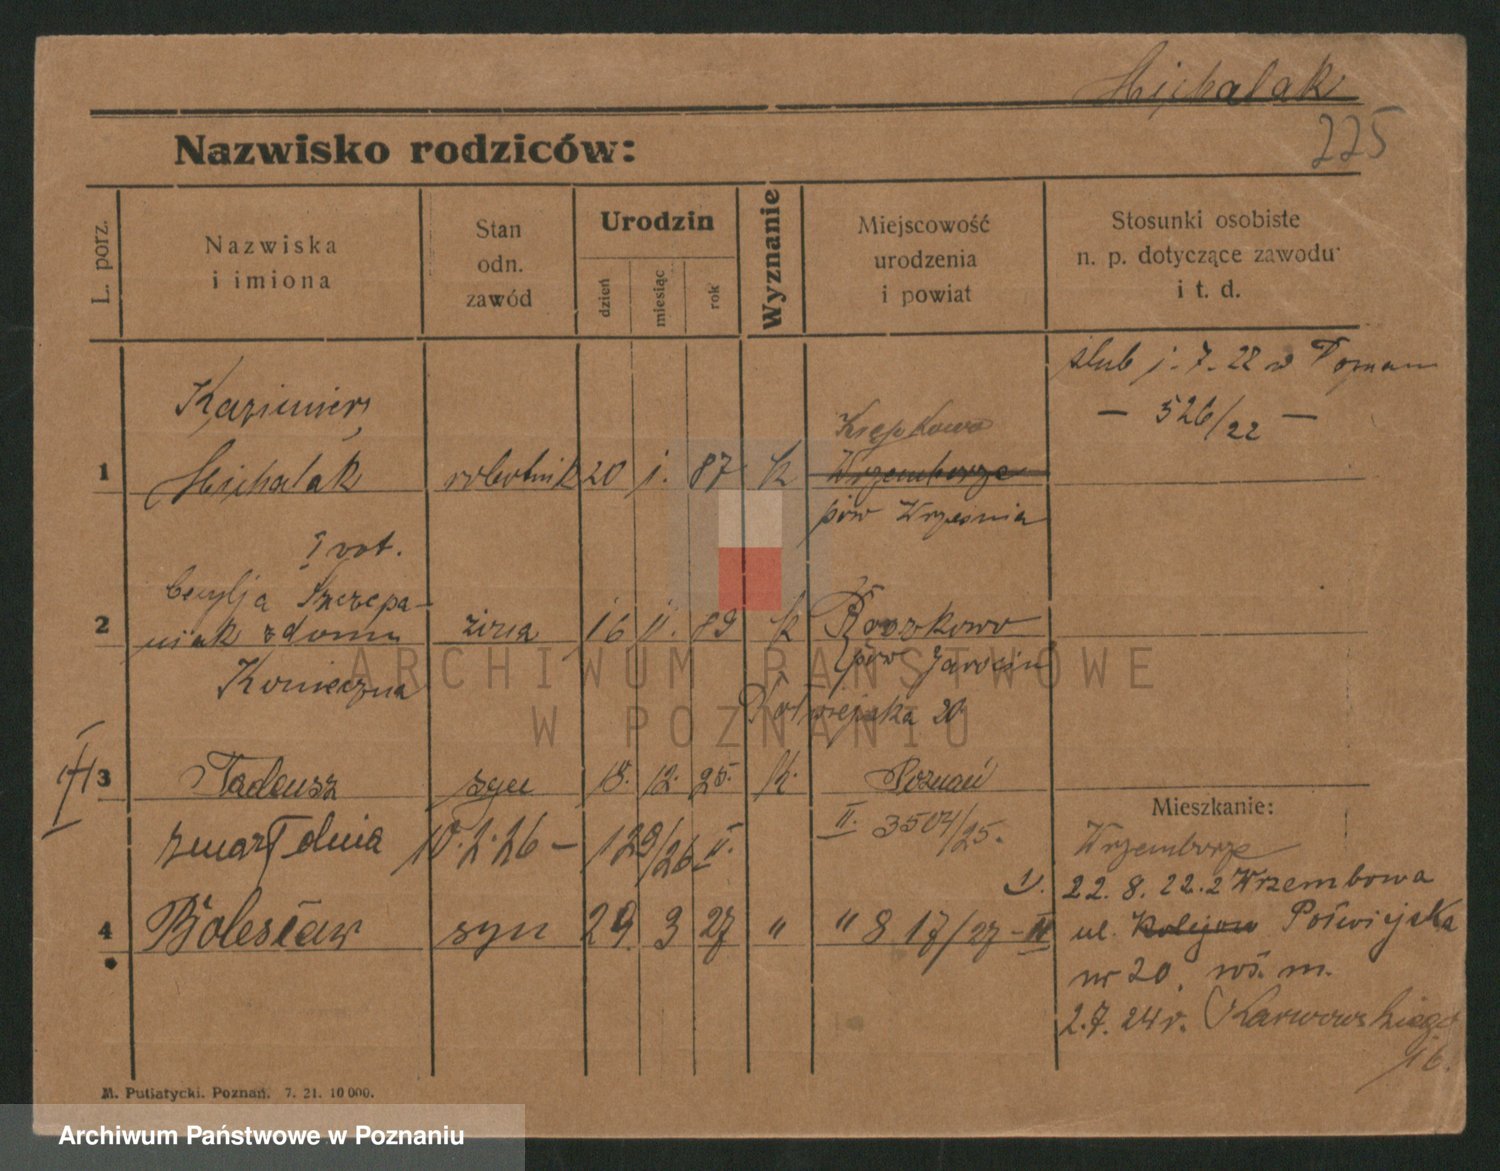 Michalak
225
Nazwisko rodziców:
L. porz.
Nazwiska
i imiona
Stan
odn.
zawód
Urodzin
dzień
miesiąc
rok
Wyznanie
Miejscowość
urodzenia
i powiat
Stosunki osobiste
n. p. dotyczące zawodu
i t. d.
ślub 1.7.22 w Poznan
— 526/22 —
Kazimierz
1 Michalak robotnik 20 1. 87 k
Wrzemborze
pow Września
rot.
Szczepa-
2 niak z domu żona 16 11. 89 k Roszkowo
Konieczna
pow Jarocin
Poświejska 20
3 Tadeusz syn 18. 12. 25. k. Poznań
zmarł dnia 10.2.26 — 129/26 II.
II. 3504/25.
4 Bolesław syn 29. 3 27 " " 817/27 - III
Mieszkanie:
Wrzemborze
1). 22.8.22. z Wrzembowa
ul. Kolejowa Poświejska
nr 20. m.
2.7.24 r. Karwowskiego
16.
M. Putiatycki. Poznań. 7. 21. 10 000.
ARCHIWUM PAŃSTWOWE
W POZNANIU
Archiwum Państwowe w Poznaniu